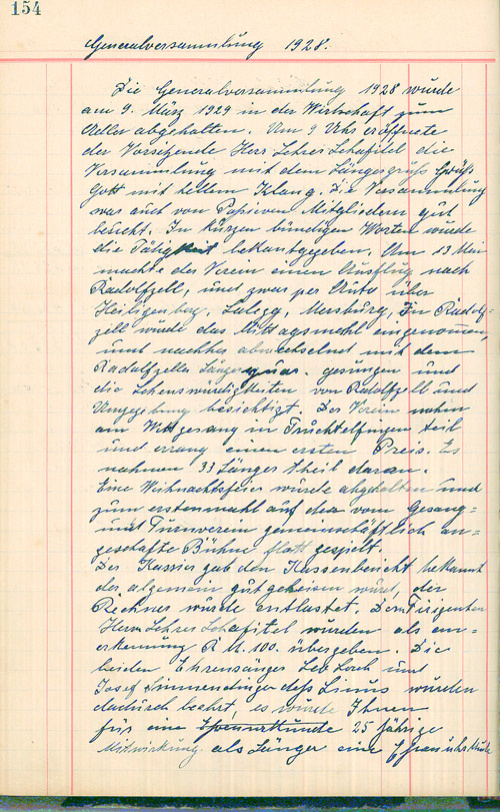 154
Generalversammlung 1928.
Die Generalversammlung 1928 wurde
am 9. März 1929 in der Wirtschaft zum
Adler abgehalten. Um 9 Uhr eröffnete
der Vorsitzende Herr Lehrer Schafitel die
Versammlung mit dem Sängergruß Grüß
Gott mit hellem Klang. Die Versammlung
war auch von Passiven Mitgliedern gut
besucht. In kurzen bündigen Worten wurde
die Tätigkeit bekantgegeben. Am 13 Mai
machte der Verein einen Ausflug nach
Radolfzell, und zwar per Auto über
Heiligenberg, Mersburg, In Radolf-
zell wurde das Mittagsmahl eingenommen,
und nachher abwechselnd mit dem
Radolfzeller gesungen und
die Sehenswürdigkeiten von Radolfzell und
Umgegebung besichtigt. Der Verein nahm
am Wettgesang in Truchtelfingen teil
und errang einen ersten Preis. Es
nahmen 33 Sänger theil daran.
Eine Weihnachtsfeier wurde abgehalten und
zum erstenmahl auf der vom Gesang-
und Turnverein gemeinschäftlich an-
geschafte Bühne flott gespielt.
Der Kassier gab den Kassenbericht bekannt
der algemein gutgeheisen wurd, der
Rechner wurde entlastet. Dem Dirigenten
Herrn Lehrer Schafitel wurden als an-
erkennung R M. 100. übergeben. Die
beiden Ehrensänger Leo und
Josef des Linus wurden
dadurch beehrt, es wurde Ihnen
für eine 25 jährige
Mitwirkung als Sänger eine